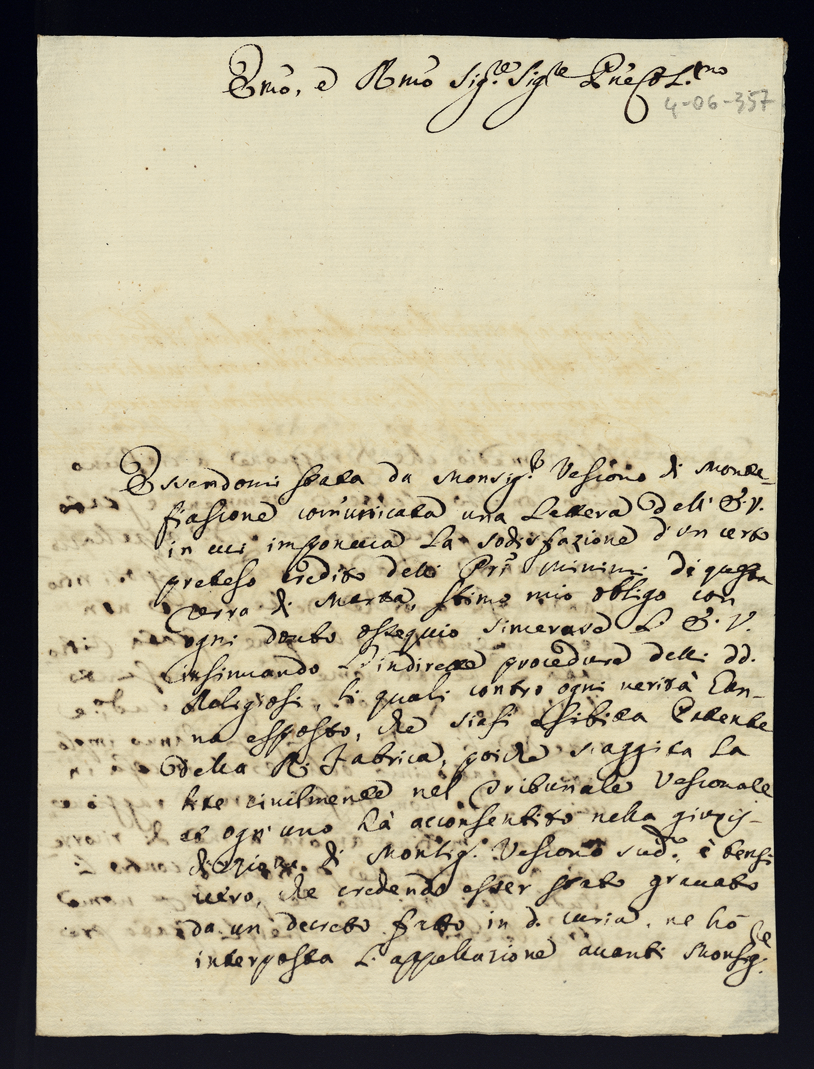 Emo, e Rmo Sig.re Sig.re Pne Col.mo
4-06-357
Essendomi stata da Monsig.r Vescovo di Monte-
fiascone comunicata una Lettera dell' E.V.
in cui imponeva la sodisfazione d'un certo
preteso credito delli Pri Minimi di questa
Terra di Marta, stimo mio obligo con
ogni dovuto ossequio sincerare L' E. V.
insinuando L'indirette procedure delli dd.
Religiosi, li quali contro ogni verità han-
no esposto, che siasi esibita Patente
della R. Fabrica, poiche s'aggita la
lite civilmente nel Tribunale Vescovale
et ogn'uno hà acconsentito nella giuris-
dizione di Monsig.r Vescovo sud.o, è bensi
vero, che credendo esser stato gravato
da un decreto fatto in d. Curia, ne hò
interposta L'appellazione avanti Monsig.re